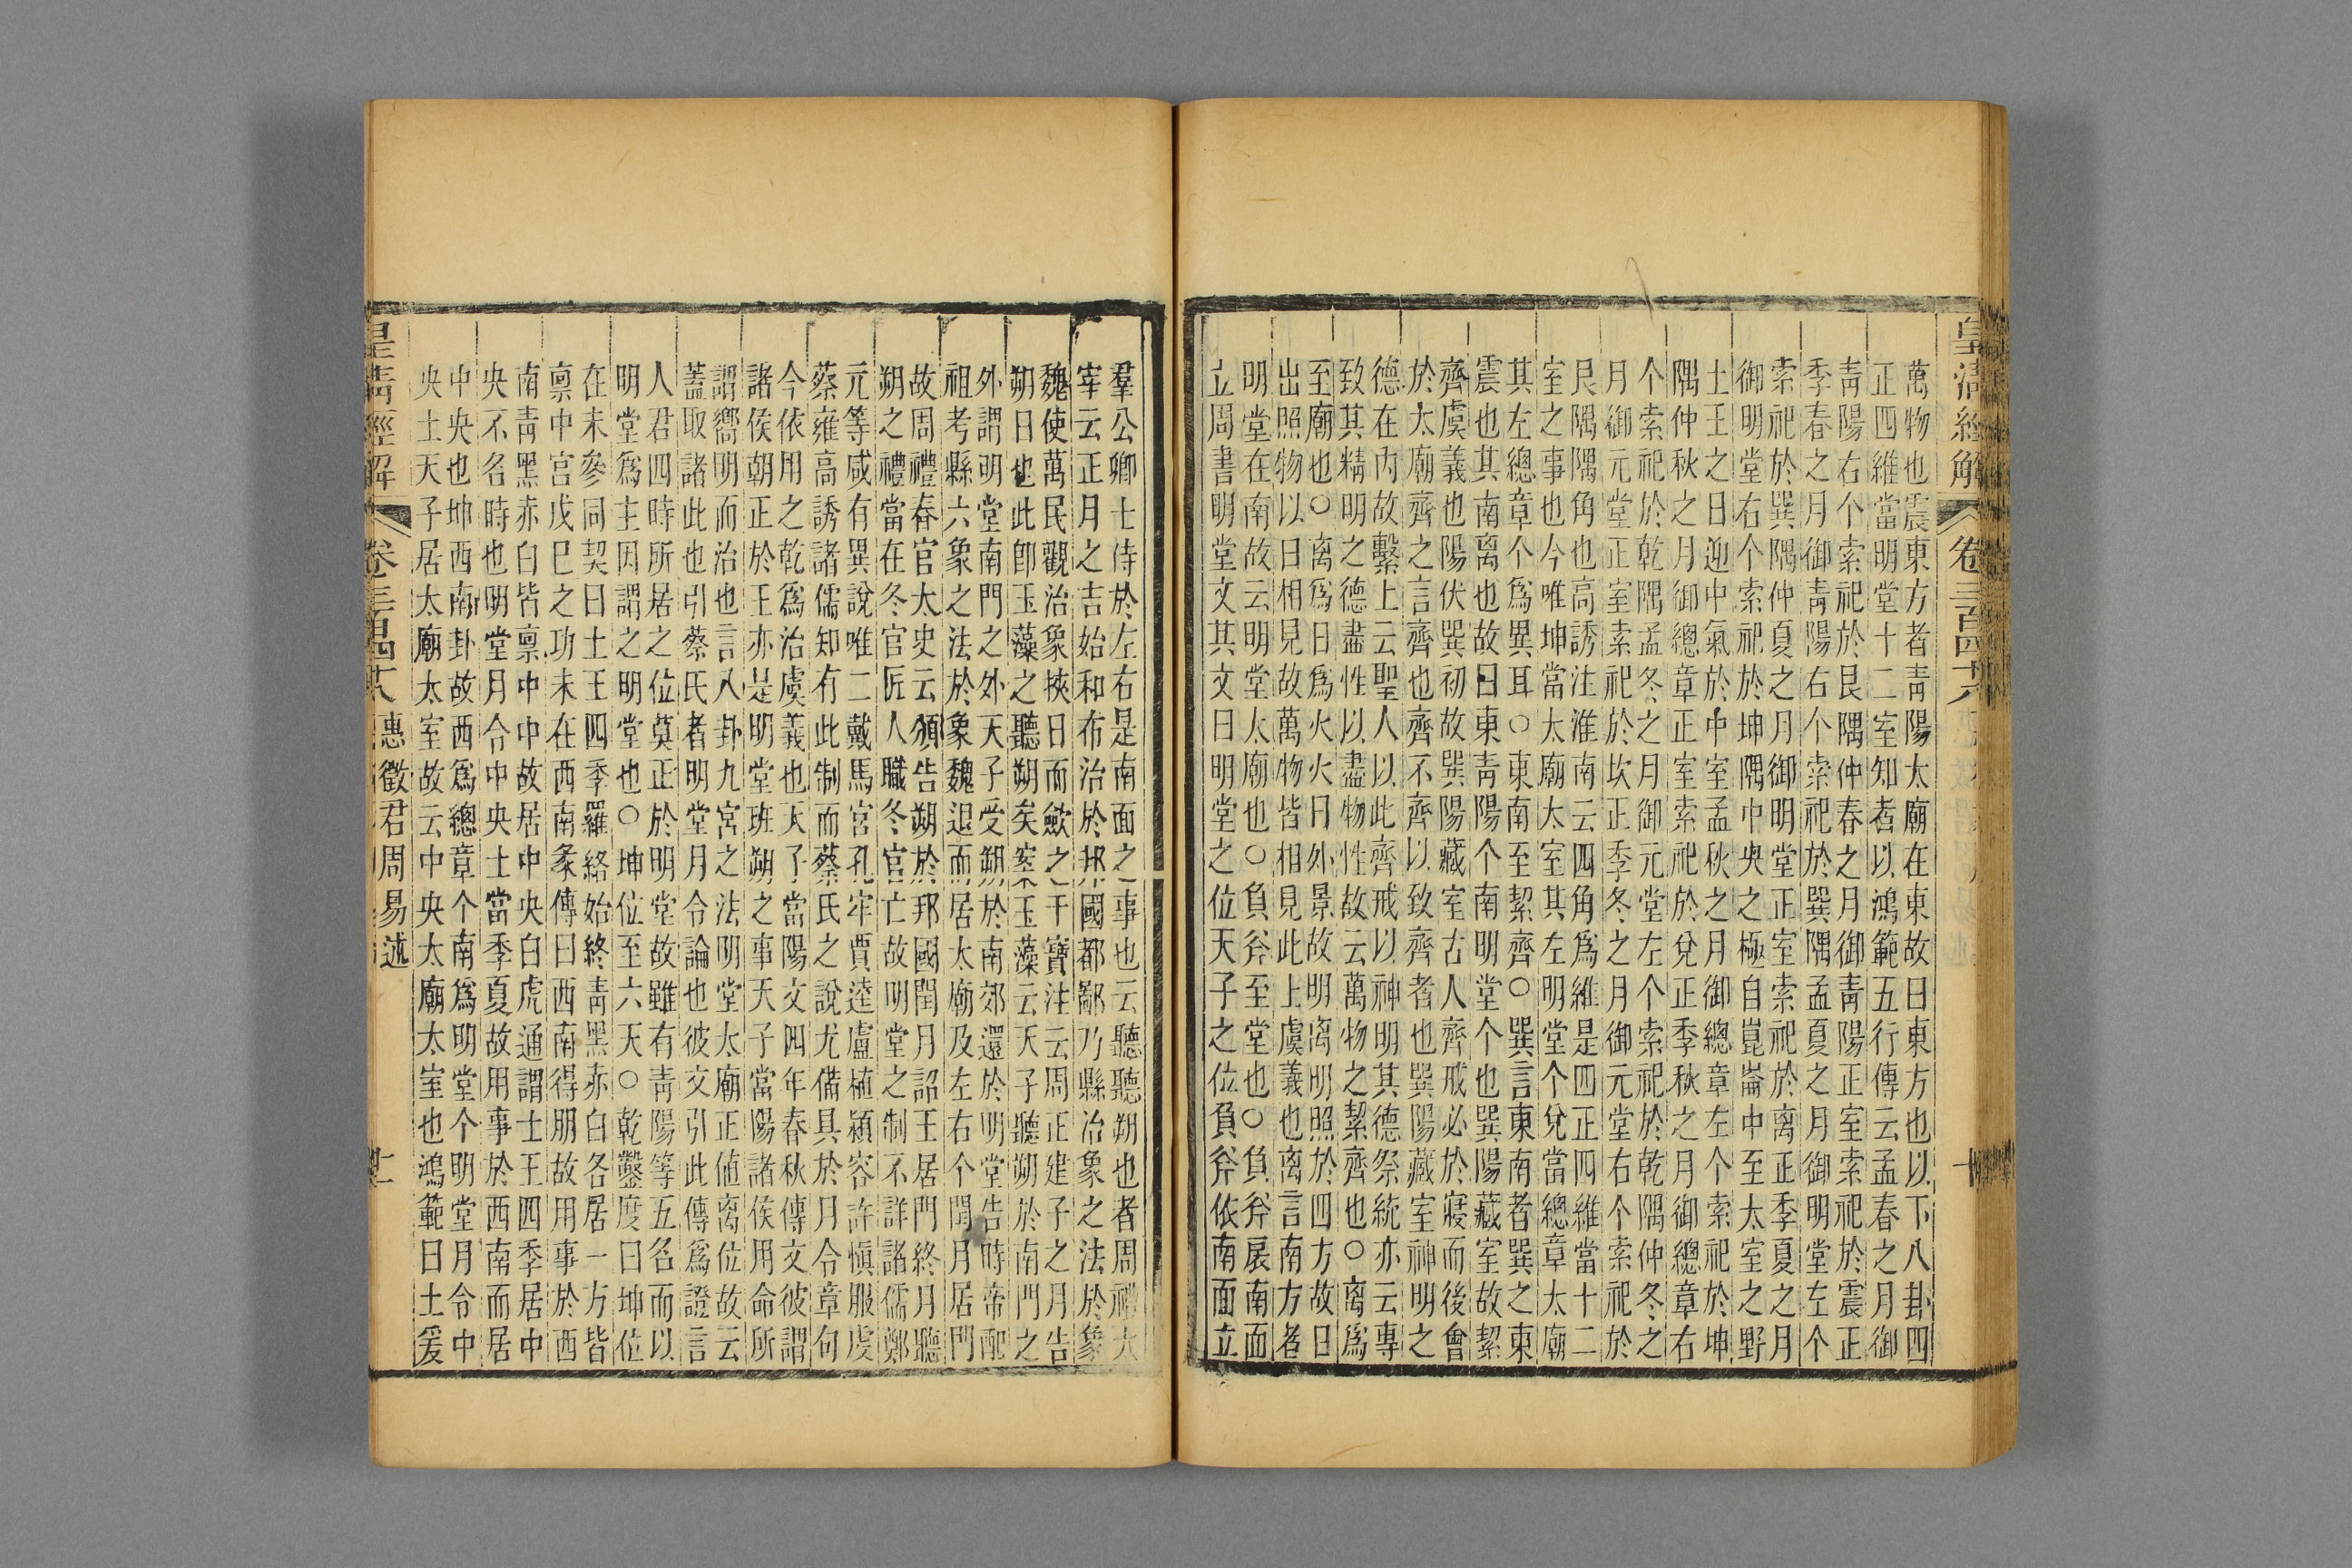 皇清經解
卷三百四十八
十
萬物也震東方者靑陽太廟在東故曰東方也以下八卦四
正四維當明堂十二室知者以鴻範五行傳云孟春之月御
靑陽右个索祀於艮隅仲春之月御靑陽正室索祀於震正
季春之月御靑陽右个索祀於巽隅孟夏之月御明堂左个
索祀於巽隅仲夏之月御明堂正室索祀於离正季夏之月
御明堂右个索祀於坤隅中央之極自崑崙中至太室之野
土王之日迎中氣於中室孟秋之月御總章左个索祀於坤
隅仲秋之月御總章正室索祀於兌正季秋之月御總章右
个索祀於乾隅孟冬之月御元堂左个索祀於乾隅仲冬之
月御元堂正室索祀於坎正季冬之月御元堂右个索祀於
艮隅隅角也高誘注淮南云四角爲維是四正四維當十二
室之事也今唯坤當太廟太室其左明堂个兌當總章太廟
其左總章个爲異耳○東南至絜齊○巽言東南者巽之東
震也其南离也故曰東靑陽个南明堂个也巽陽藏室故絜
齊虞義也陽伏巽初故巽陽藏室古人齊戒必於寢而後會
於太廟齊之言齊也齊不齊以致齊者也巽陽藏室神明之
德在內故繫上云聖人以此齊戒以神明其德祭統亦云專
致其精明之德盡性以盡物性故云萬物之絜齊也○离爲
至廟也○离爲日爲火火日外景故明离明照於四方故日
出照物以日相見故萬物皆相見此上虞義也离言南方者
明堂在南故云明堂太廟也○負斧至堂也○負斧扆南面
立周書明堂文其文曰明堂之位天子之位負斧依南面立
羣公卿士侍於左右是南面之事也云聽聽朔也者周禮大
宰云正月之吉始和布治於邦國都鄙乃縣治象之法於象
魏使萬民觀治象挾日而歛之干寶注云周正建子之月告
朔日也此卽玉藻之聽朔矣案玉藻云天子聽朔於南門之
外謂明堂南門之外天子受朔於南郊還於明堂告時帝配
祖考縣六象之法於象魏退而居太廟及左右个閏月居門
故周禮春官太史云頒告朔於邦國閏月詔王居門終月聽
朔之禮當在冬官匠人職冬官亡故明堂之制不詳諸儒鄭
元等咸有異說唯二戴馬宮孔牢賈逵盧植穎容許愼服虔
蔡雍高誘諸儒知有此制而蔡氏之說尤備具於月令章句
今依用之乾爲治虞義也天子當陽文四年春秋傳文彼謂
諸侯朝正於王亦是明堂班朔之事天子當陽諸侯用命所
謂嚮明而治也言八卦九宮之法明堂太廟正値离位故云
蓋取諸此也引蔡氏者明堂月令論也彼文引此傳爲證言
人君四時所居之位莫正於明堂故雖有靑陽等五名而以
明堂爲主因謂之明堂也○坤位至六天○乾鑿度曰坤位
在未參同契曰土王四季羅絡始終靑黑赤白各居一方皆
禀中宮戊巳之功未在西南彖傳曰西南得朋故用事於西
南靑黑赤白皆禀中中故居中央白虎通謂土王四季居中
央不名時也明堂月令中央土當季夏故用事於西南而居
中央也坤西南卦故西爲總章个南爲明堂个明堂月令中
央土天子居太廟太室故云中央太廟太室也鴻範曰土爰
皇清經解
卷三百四十八
惠徵君周易述
十一